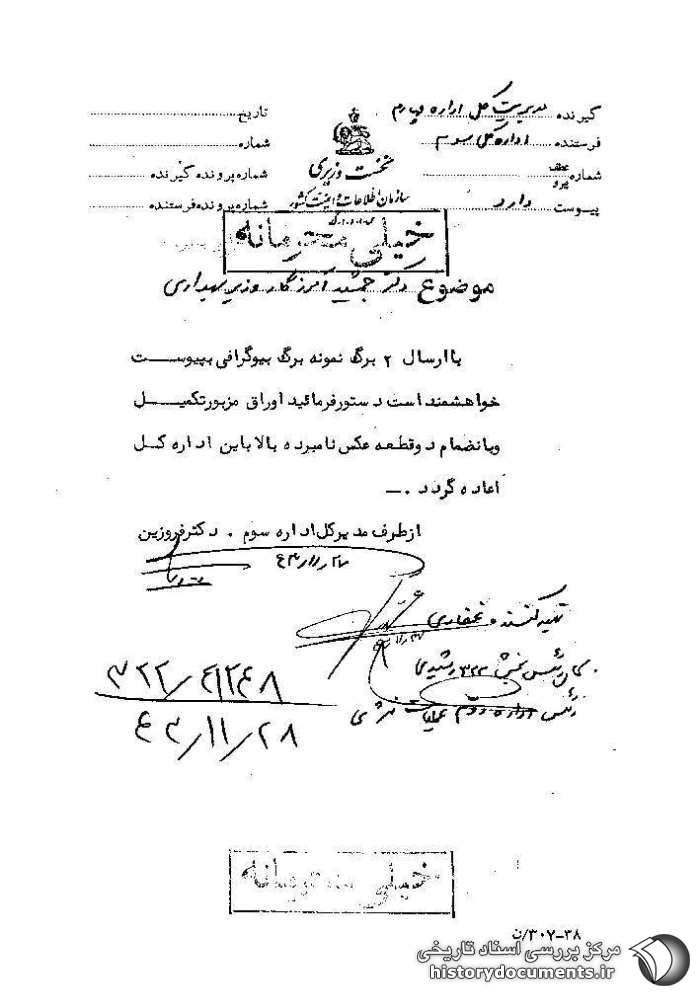 گیرنده مدیریت کل اداره چهارم
فرستنده اداره کل سوم
شماره عطف پیرو
پیوست دارد
نخست وزیری
سازمان اطلاعات و امنیت کشور
س.ا.و.ا.ک
تاریخ
شماره
شماره پرونده گیرنده
شماره پرونده فرستنده
خیلی محرمانه
موضوع دکتر جمشید آموزگار وزیر بهداری
با ارسال ۲ برگ نمونه برگ بیوگرافی بپیوست
خواهشمند است دستور فرمائید اوراق مزبور تکمیل
و بانضمام دو قطعه عکس نامبرده بالا باین اداره کل
اعاده گردد .ـ
از طرف مدیر کل اداره سوم . دکتر فروزین
۴۳/۱۱/۲۷
تهیه کننده غفاری
رئیس بخش ۳۲۲ رشیدی
رئیس اداره دوم عملیات
۳۲۲/۴۱۲۴۸
۴۳/۱۱/۲۸
خیلی محرمانه
۳۰۷-۳۸/ن
مرکز بررسی اسناد تاریخی
historydocuments.ir